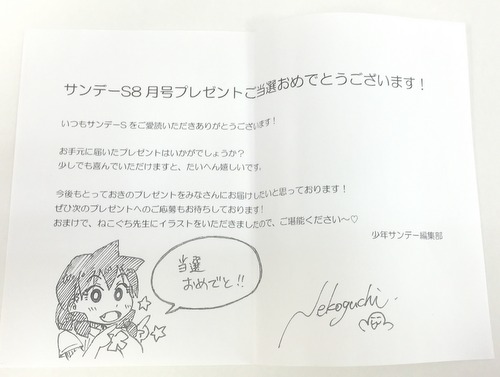 サンデーS8月号プレゼントご当選おめでとうございます！
いつもサンデーSをご愛読いただきありがとうございます！
お手元に届いたプレゼントはいかがでしょうか？
少しでも喜んでいただけますと、たいへん嬉しいです。
今後もとっておきのプレゼントをみなさんにお届けしたいと思っております！
ぜひ次のプレゼントへのご応募もお待ちしております！
おまけで、ねこぐち先生にイラストをいただきましたので、ご堪能ください～♡
少年サンデー編集部
当選
おめでと!!
Nekoguchi